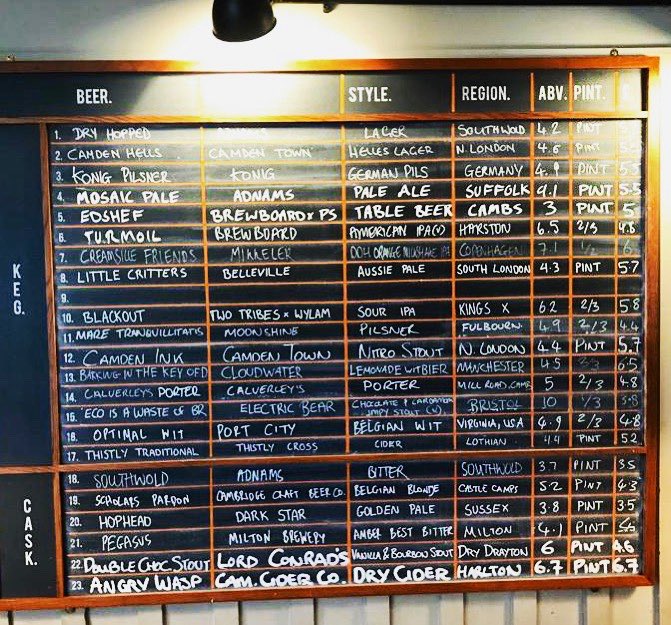 BEER. STYLE. REGION. ABV. PINT.
KEG.
1. DRY HOPPED LAGER SOUTHWOLD 4.2 PINT
2. CAMDEN HELLS CAMDEN TOWN HELLES LAGER N. LONDON 4.6 PINT
3. KONIG PILSNER KONIG GERMAN PILS GERMANY 4.9 PINT 5.5
4. MOSAIC PALE ADNAMS PALE ALE SUFFOLK 4.1 PINT 5.5
5. EDSHEF BREWBOARD x PS TABLE BEER CAMBS 3 PINT 5
6. TURMOIL BREWBOARD AMERICAN IPA (V) HARSTON 6.5 2/3 4.8
7. CREAMSILE FRIENDS MIKKELER DDH ORANGE MILKSHAKE IPA COPENHAGEN 7.1
8. LITTLE CRITTERS BELLEVILLE AUSSIE PALE SOUTH LONDON 4.3 PINT 5.7
9.
10. BLACKOUT TWO TRIBES x WYLAM SOUR IPA KINGS X 6.2 2/3 5.8
11. MARE TRANQUILLITATIS MOONSHINE PILSNER FULBOURN 4.9 2/3 4.4
12. CAMDEN INK CAMDEN TOWN NITRO STOUT N. LONDON 4.4 PINT 5.7
13. BARKING IN THE KEY OF D CLOUDWATER LEMONADE WITBIER MANCHESTER 4.5 6.5
14. CALVERLEYS PORTER CALVERLEY'S PORTER MILL ROAD, CAMB 5 2/3 4.8
15. ECO IS A WASTE OF BR ELECTRIC BEAR CHOCOLATE & CARDAMOM IMPY STOUT (V) BRISTOL 10 1/3 5.8
16. OPTIMAL WIT PORT CITY BELGIAN WIT VIRGINIA, USA 4.9 2/3 4.8
17. THISTLY TRADITIONAL THISTLY CROSS CIDER LOTHIAN 4.4 PINT 5.2
CASK.
18. SOUTHWOLD ADNAMS BITTER SOUTHWOLD 3.7 PINT 3.5
19. SCHOLARS PARDON CAMBRIDGE CRAFT BEER CO. BELGIAN BLONDE CASTLE CAMPS 5.2 PINT 4.3
20. HOPHEAD DARK STAR GOLDEN PALE SUSSEX 3.8 PINT 3.5
21. PEGASUS MILTON BREWERY AMBER BEST BITTER MILTON 4.1 PINT
22. DOUBLE CHOC STOUT LORD CONRAD'S VANILLA & BOURBON STOUT DRY DRAYTON 6 PINT 4.6
23. ANGRY WASP CAM. CIDER CO. DRY CIDER HARLTON 6.7 PINT 6.7